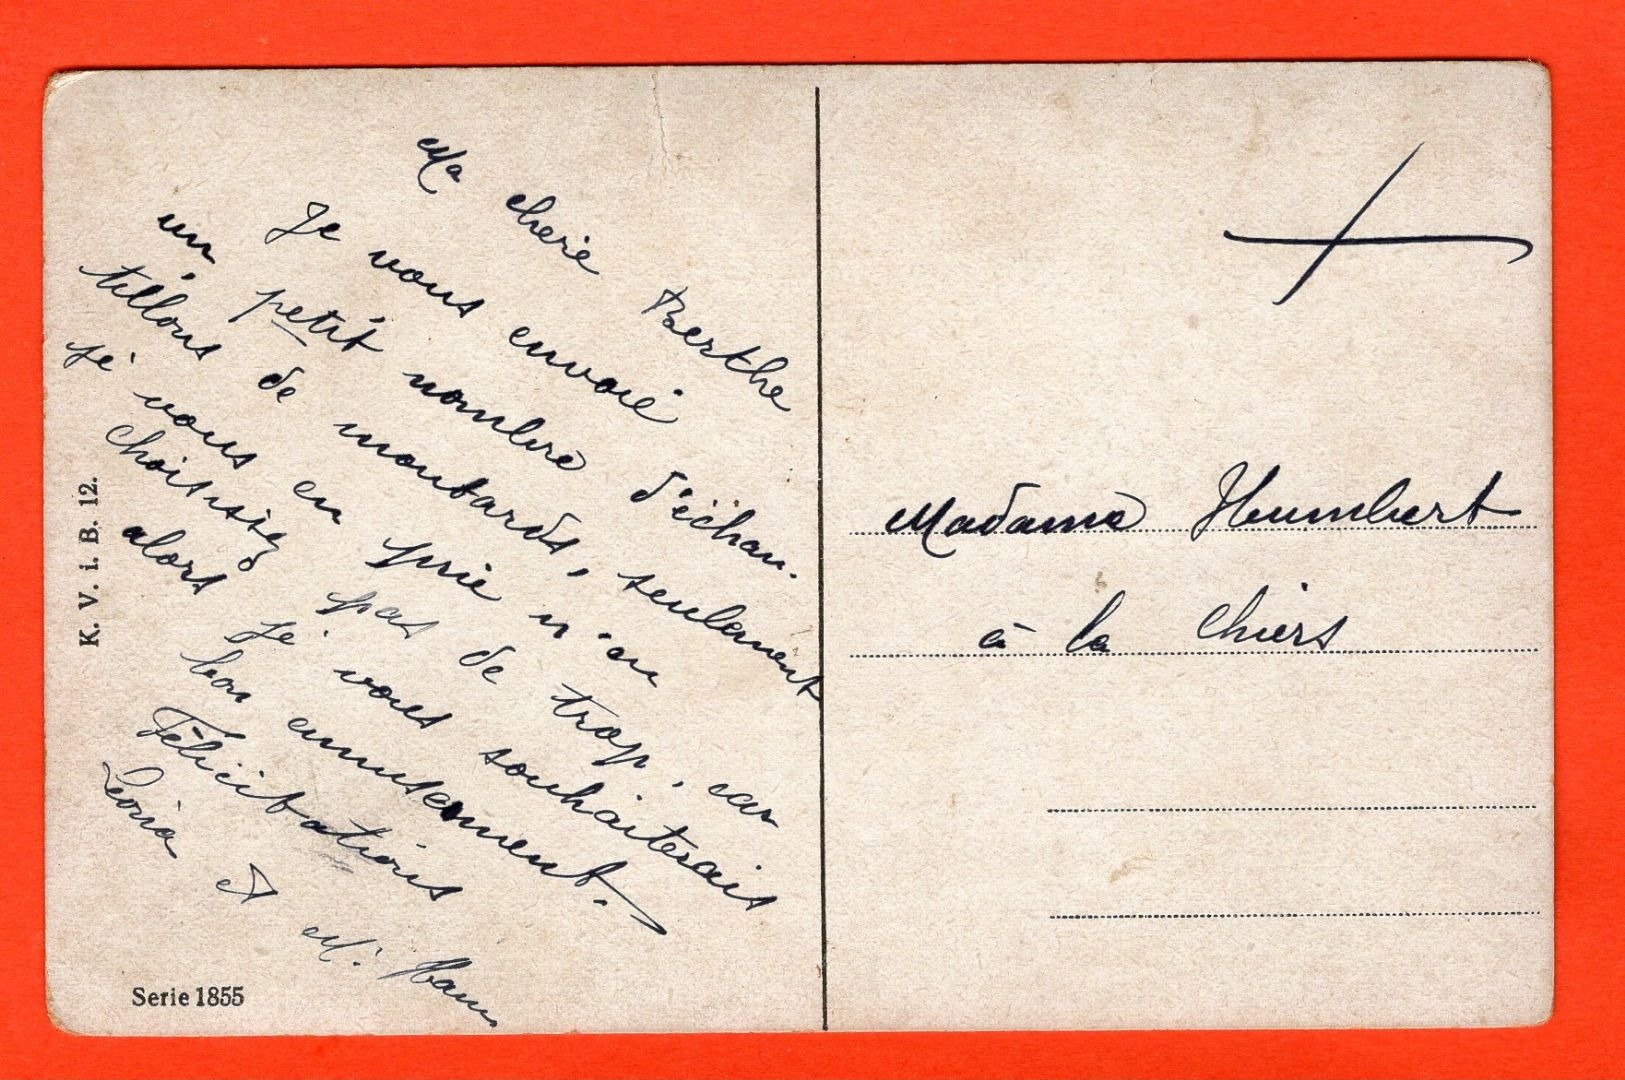 Ma cherie Berthe
Je vous envoie
un petit nombre d'échan-
tillons de moutards, seulement
je vous en prie n'en
choisisez pas de trop, car
alors je vous souhaiterais
bon amusement.
Félicitations
et M.
K. V. i. B. 12.
Serie 1855
Madame Humbert
à la Chiers